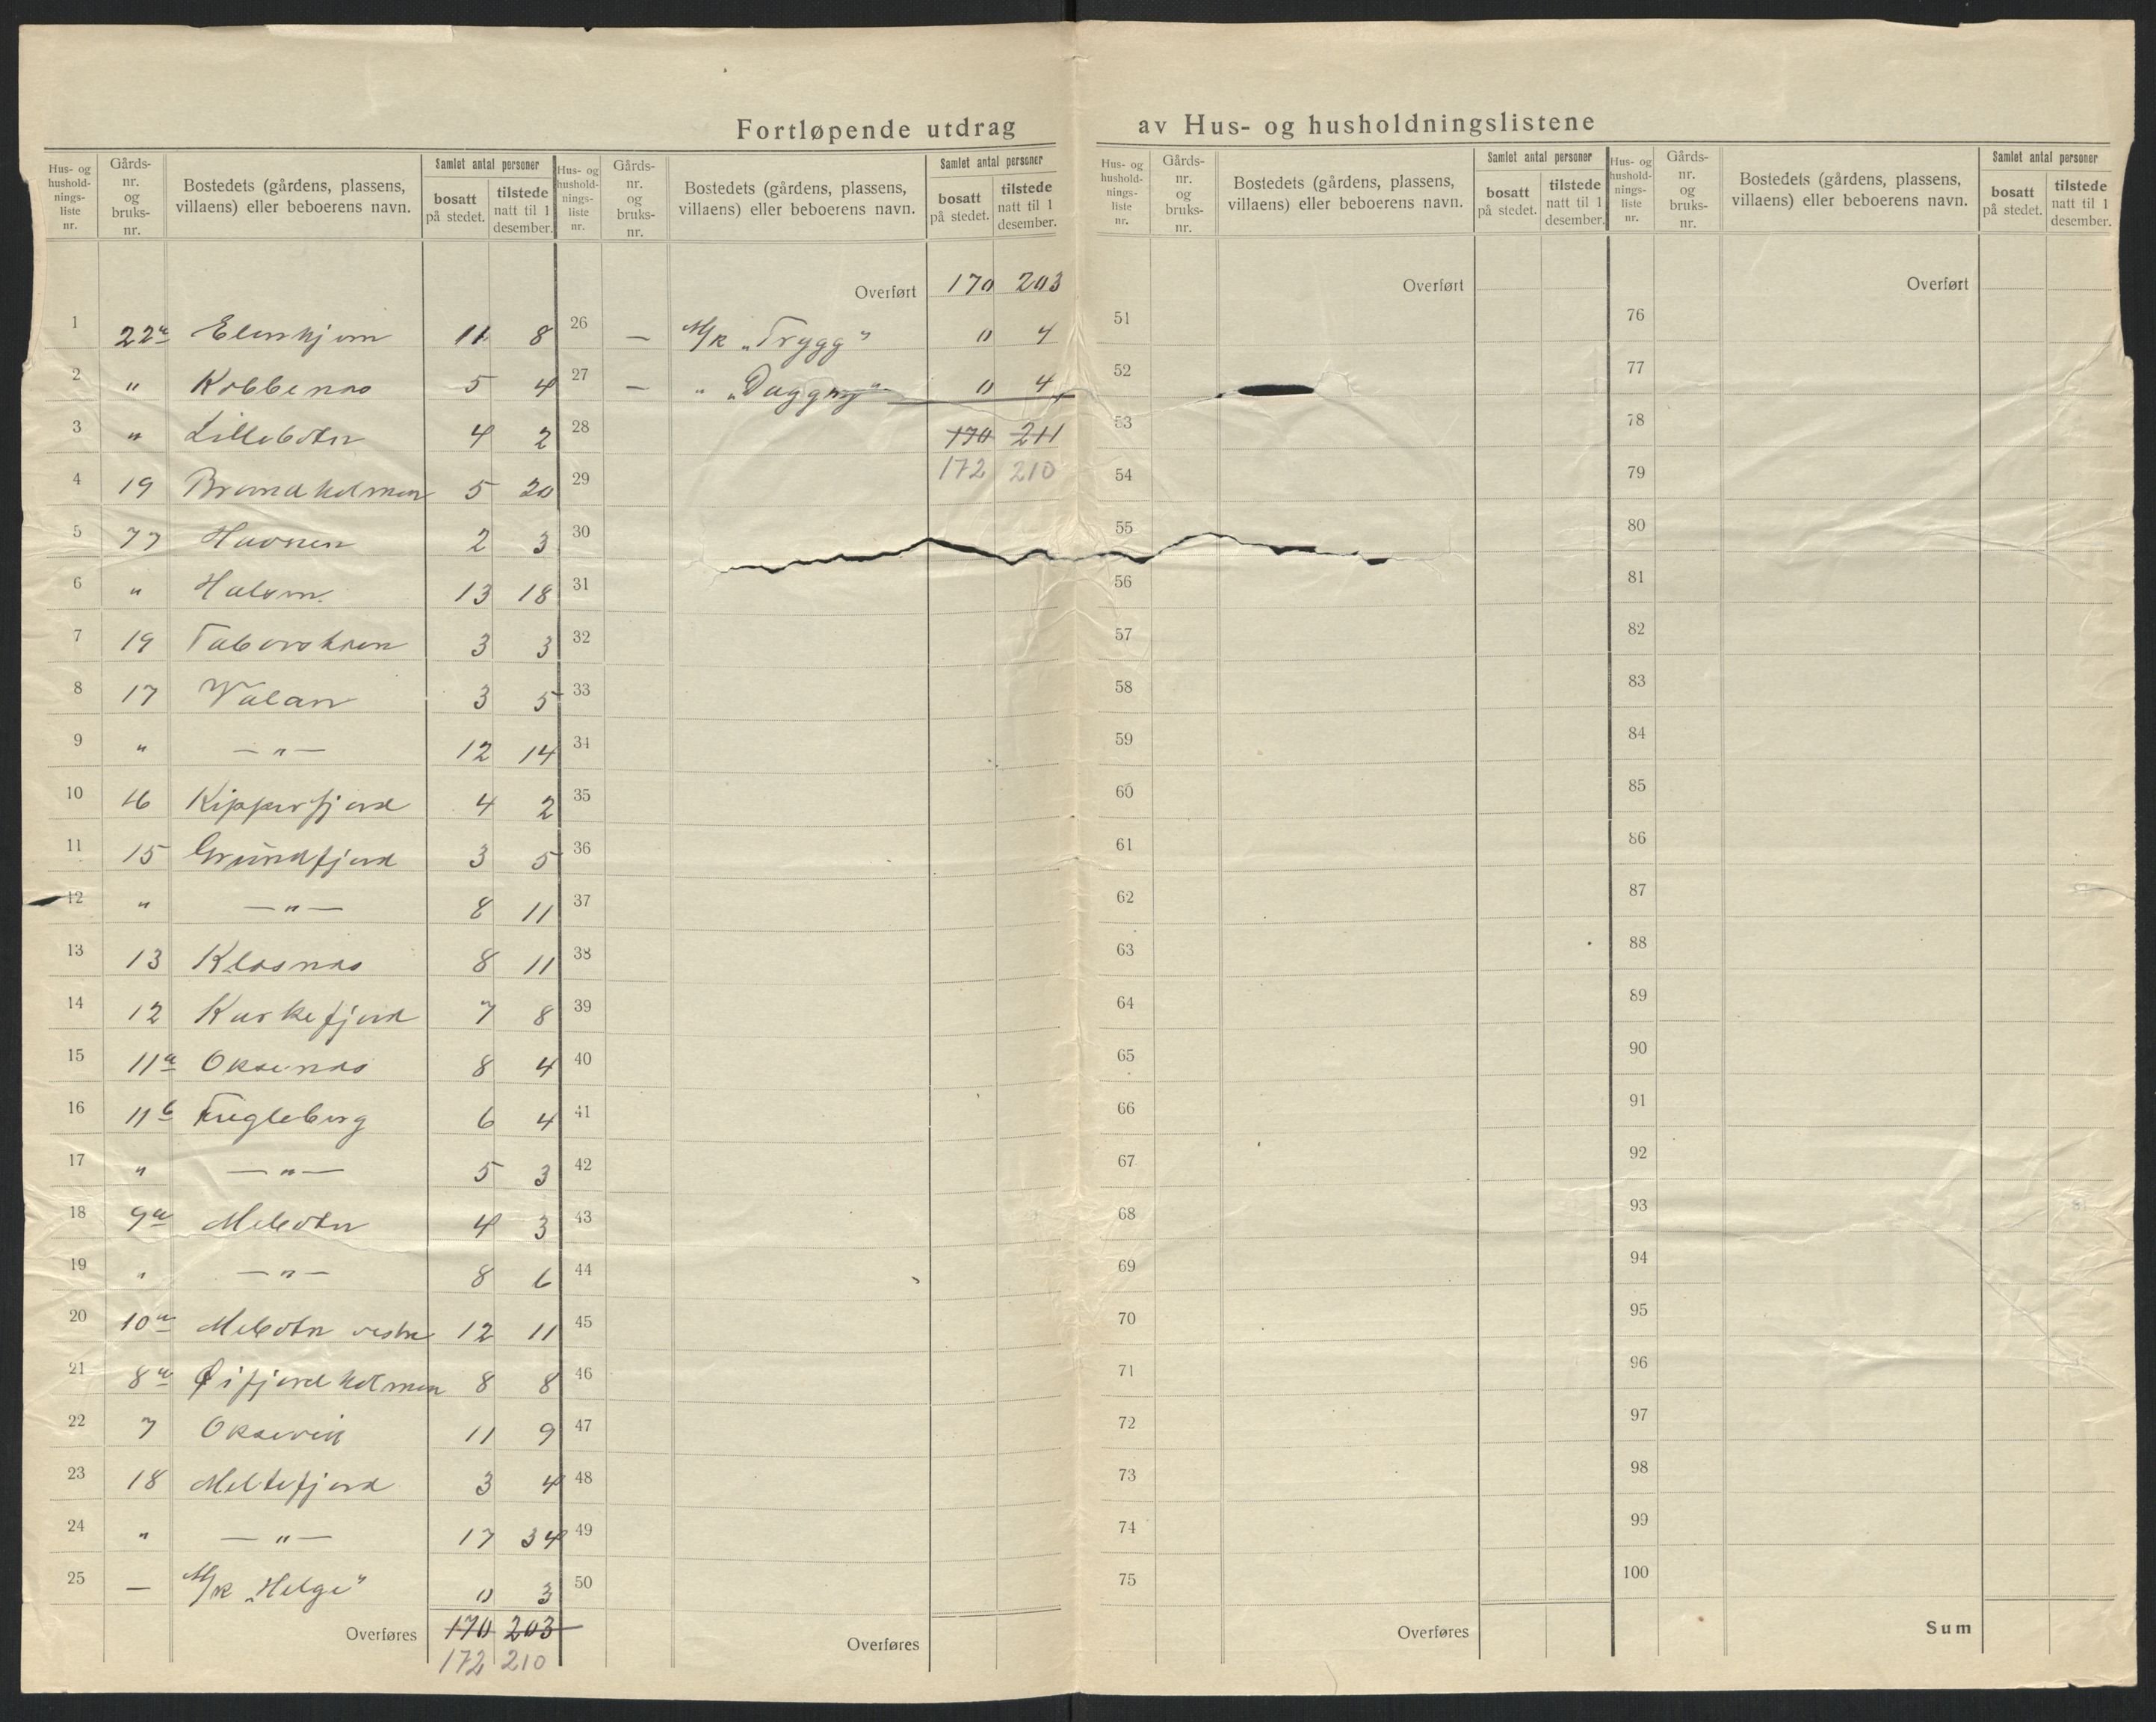 Fortløpende utdrag av Hus- og husholdningslistene
Hus- og hushold-nings-liste nr. Gårds-nr. og bruks-nr. Bostedets (gårdens, plassens, villaens) eller beboerens navn. Samlet antal personer bosatt på stedet. tilstede natt til 1 desember.
1 22a Elenhjem 11 8
2 " Kobbenes 5 4
3 " Lillebotn 4 2
4 19 Brandholmen 5 20
5 77 Havnen 2 3
6 " Halvm 13 18
7 19 3 3
8 17 Valan 3 5
9 " — " — 12 14
10 16 Kipperfjord 4 2
11 15 Grundfjord 3 5
12 " — " — 8 11
13 13 Klosnes 8 11
14 12 Kurkefjord 7 8
15 11a Oksenes 8 4
16 11b Fugleberg 6 4
17 " — " — 5 3
18 9a Mebotn 4 3
19 " — " — 8 6
20 10a Mebotn vestre 12 11
21 8a Øifjordholmen 8 8
22 7 Oksevik 11 9
23 18 Meltefjord 3 4
24 " — " — 17 34
25 — M/k „Helge" 0 3
Overføres 170 203
172 210
Hus- og hushold-nings-liste nr. Gårds-nr. og bruks-nr. Bostedets (gårdens, plassens, villaens) eller beboerens navn. Samlet antal personer bosatt på stedet. tilstede natt til 1 desember.
Overført 170 203
26 — M/k „Trygg" 0 4
27 — " „Daggny" 0 4
28 170 211
29 172 210
30
31
32
33
34
35
36
37
38
39
40
41
42
43
44
45
46
47
48
49
50
Overføres
Hus- og hushold-nings-liste nr. Gårds-nr. og bruks-nr. Bostedets (gårdens, plassens, villaens) eller beboerens navn. Samlet antal personer bosatt på stedet. tilstede natt til 1 desember.
Overført
51
52
53
54
55
56
57
58
59
60
61
62
63
64
65
66
67
68
69
70
71
72
73
74
75
Overføres
Hus- og hushold-nings-liste nr. Gårds-nr. og bruks-nr. Bostedets (gårdens, plassens, villaens) eller beboerens navn. Samlet antal personer bosatt på stedet. tilstede natt til 1 desember.
Overført
76
77
78
79
80
81
82
83
84
85
86
87
88
89
90
91
92
93
94
95
96
97
98
99
100
Sum